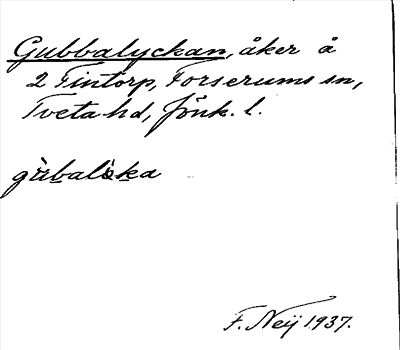 Gubbalyckan, åker å
2 Tintorp, Forserums sn,
Tveta hd, Jönk. l.
F. Neij 1937.